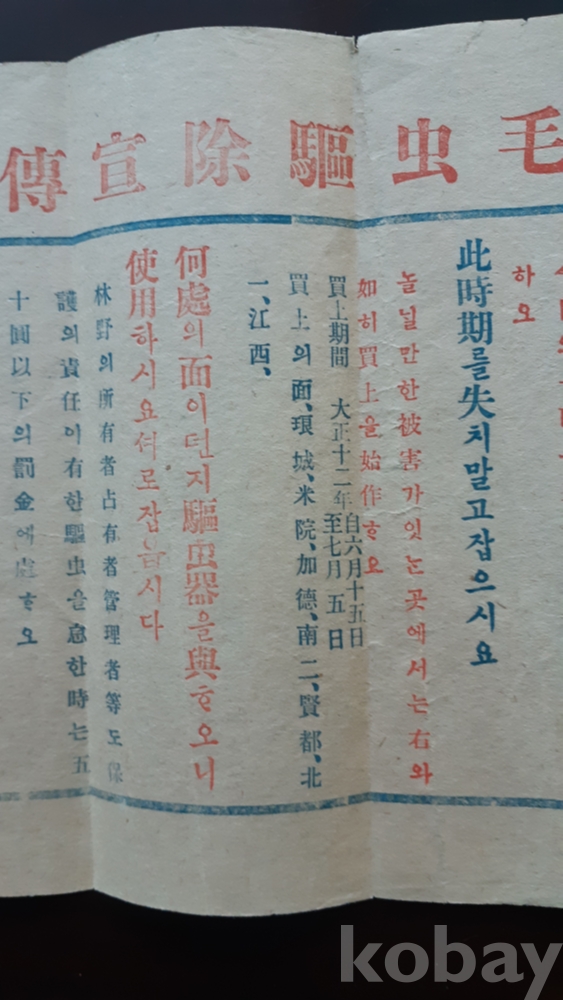 毛虫驅除宣傳
하오
此時期를失치말고잡으시요
놀널만한被害가잇는곳에서는右와
如히買上을始作ᄒᆞ오
買上期間 大正十二年自六月十五日至七月五日
買上의面、琅城、米院、加德、南二、賢都、北
一、江西、
何處의面이던지驅虫器을與ᄒᆞ오니
使用하시요서로잡읍시다
林野의所有者占有者管理者等도保
護의責任이有한驅虫을怠한時는五
十圓以下의罰金에處ᄒᆞ오
kobay